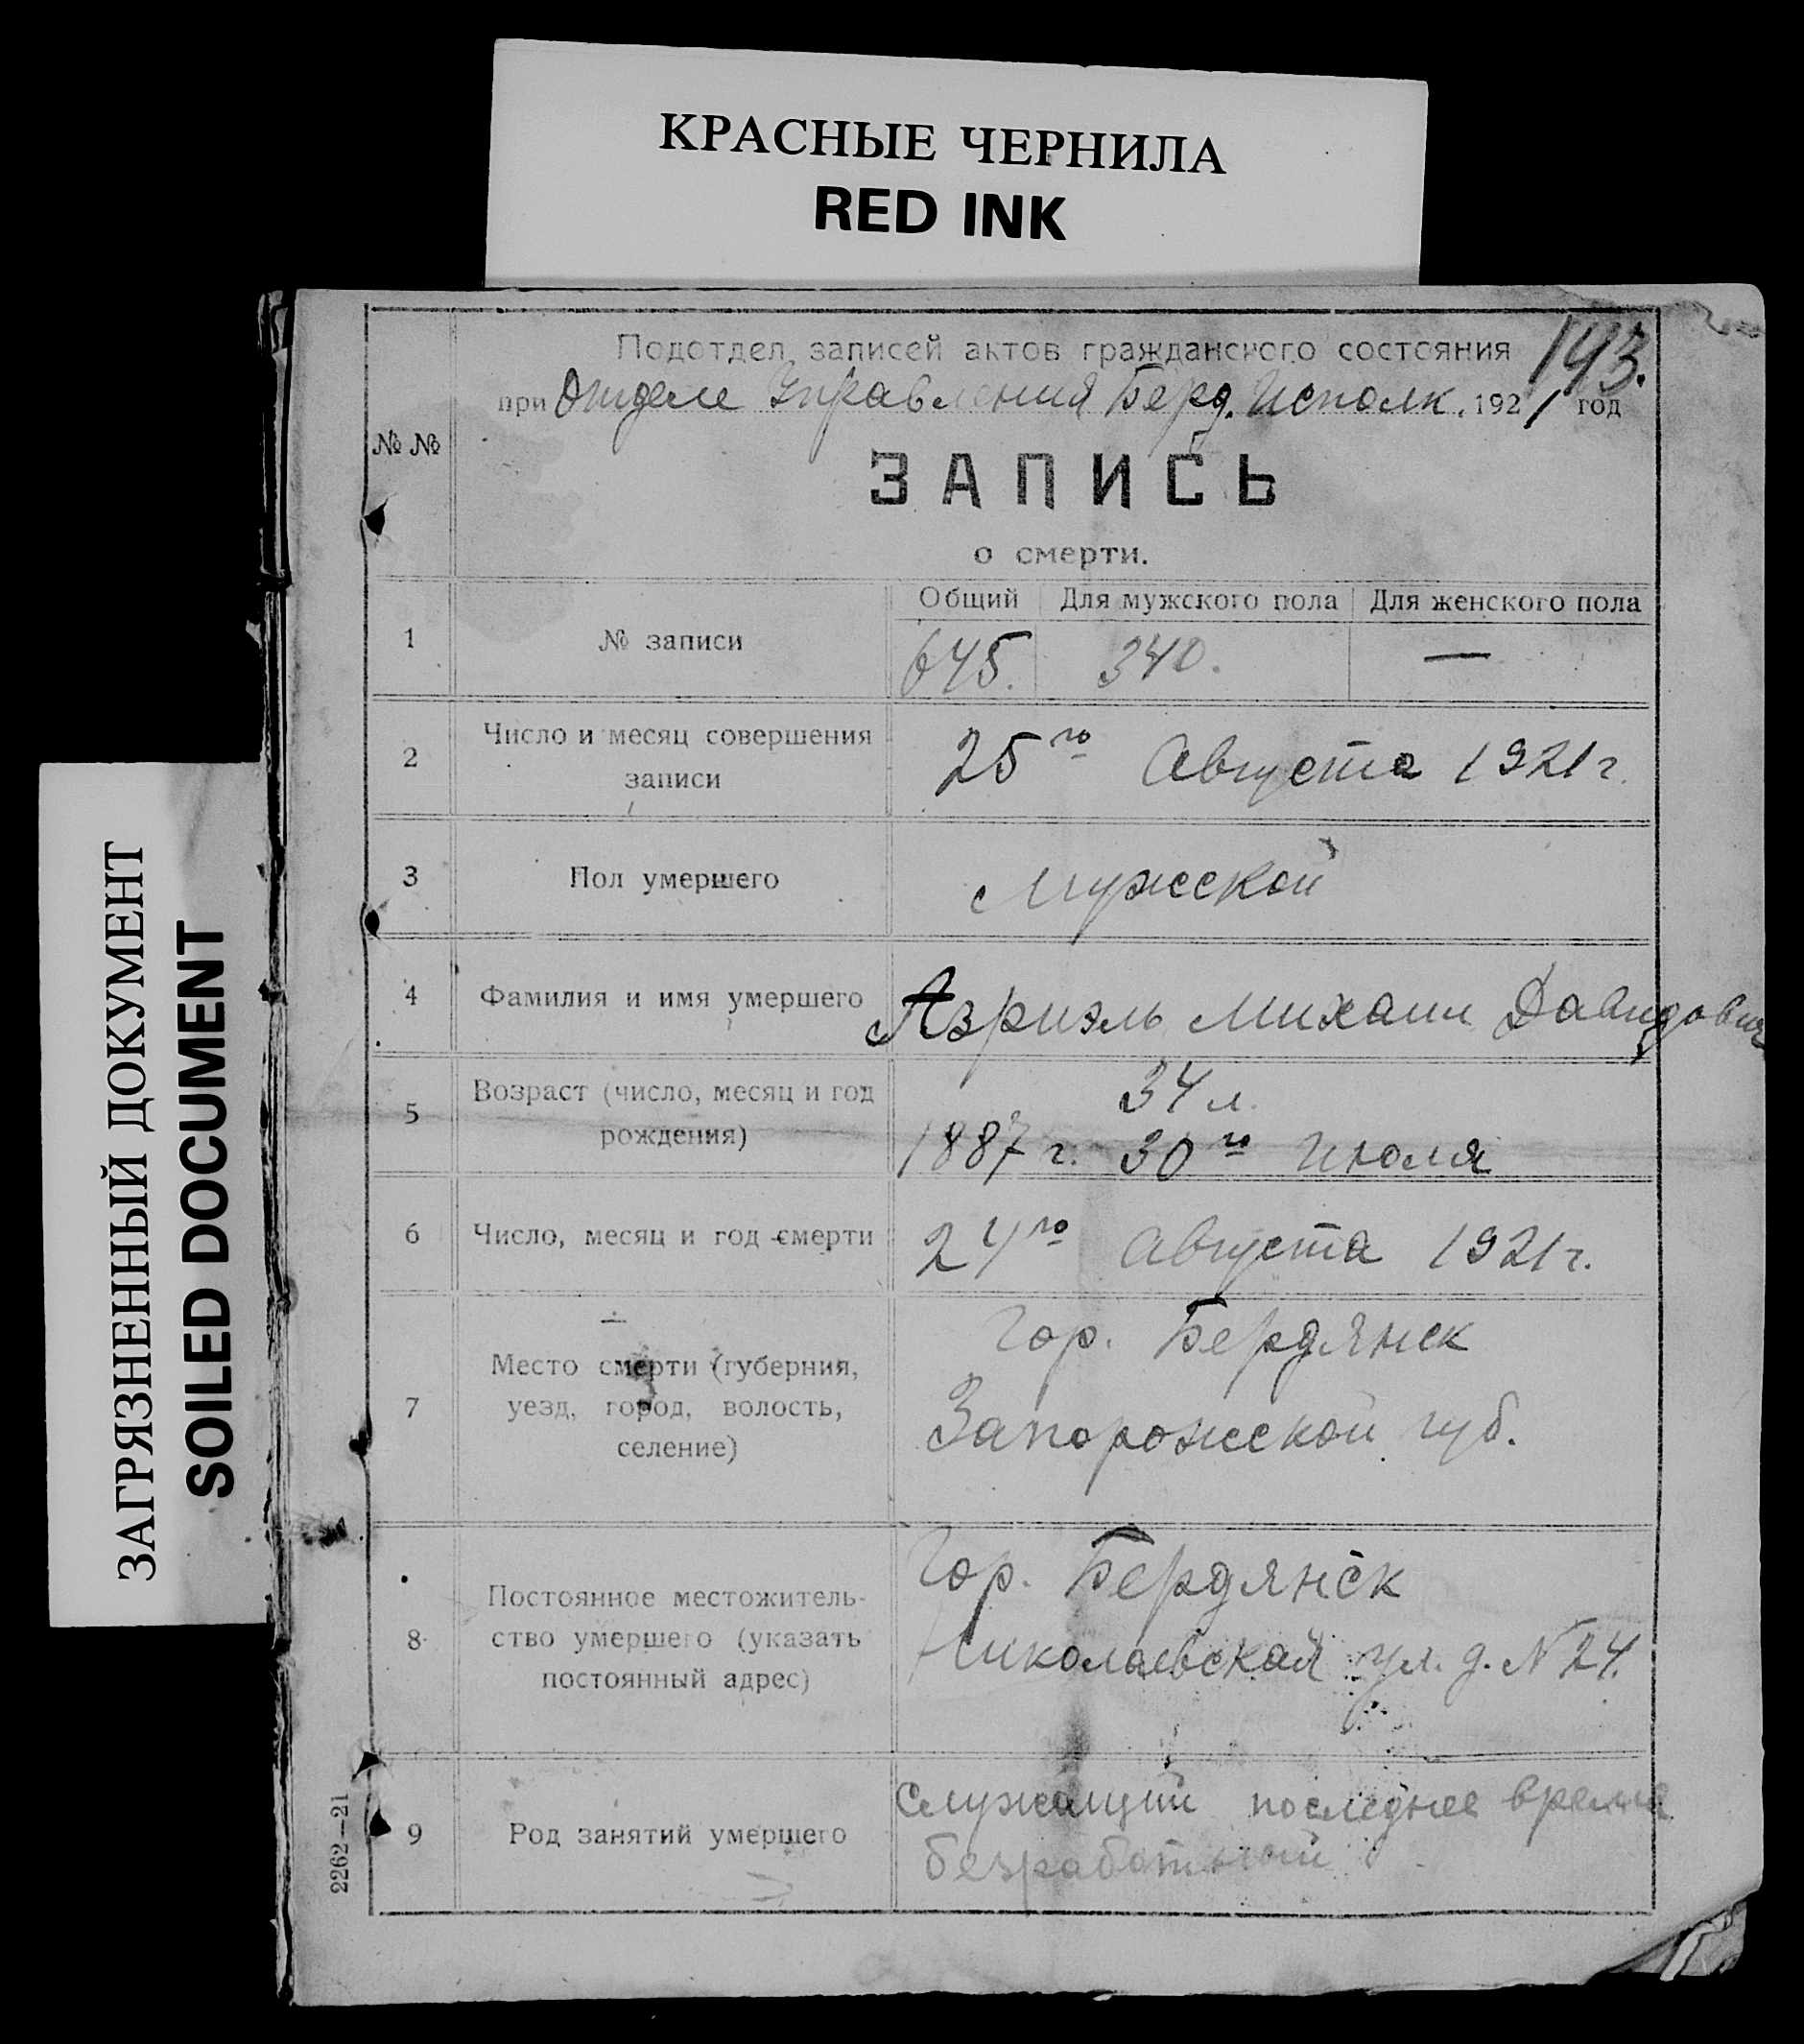 КРАСНЫЕ ЧЕРНИЛА
RED INK
ЗАГРЯЗНЕННЫЙ ДОКУМЕНТ
SOILED DOCUMENT
143.
Подотдел записей актов гражданского состояния
при Отделе Управления Берд. Исполк. 1921 год
№ №
ЗАПИСЬ
о смерти.
Общий Для мужского пола Для женского пола
1 № записи 645. 340. —
2 Число и месяц совершения
записи
25го Августа 1921 г.
3 Пол умершего Мужской
4 Фамилия и имя умершего Азриэль Михаил Давидович
5 Возраст (число, месяц и год
рождения)
34 л.
1887 г. 30го Июля
6 Число, месяц и год смерти 24го Августа 1921 г.
7 Место смерти (губерния,
уезд, город, волость,
селение)
Гор. Бердянск
Запорожской губ.
8 Постоянное местожитель-
ство умершего (указать
постоянный адрес)
Гор. Бердянск
Николаевская ул. д. № 24.
9 Род занятий умершего
Служащий последнее время
безработный
2262—21